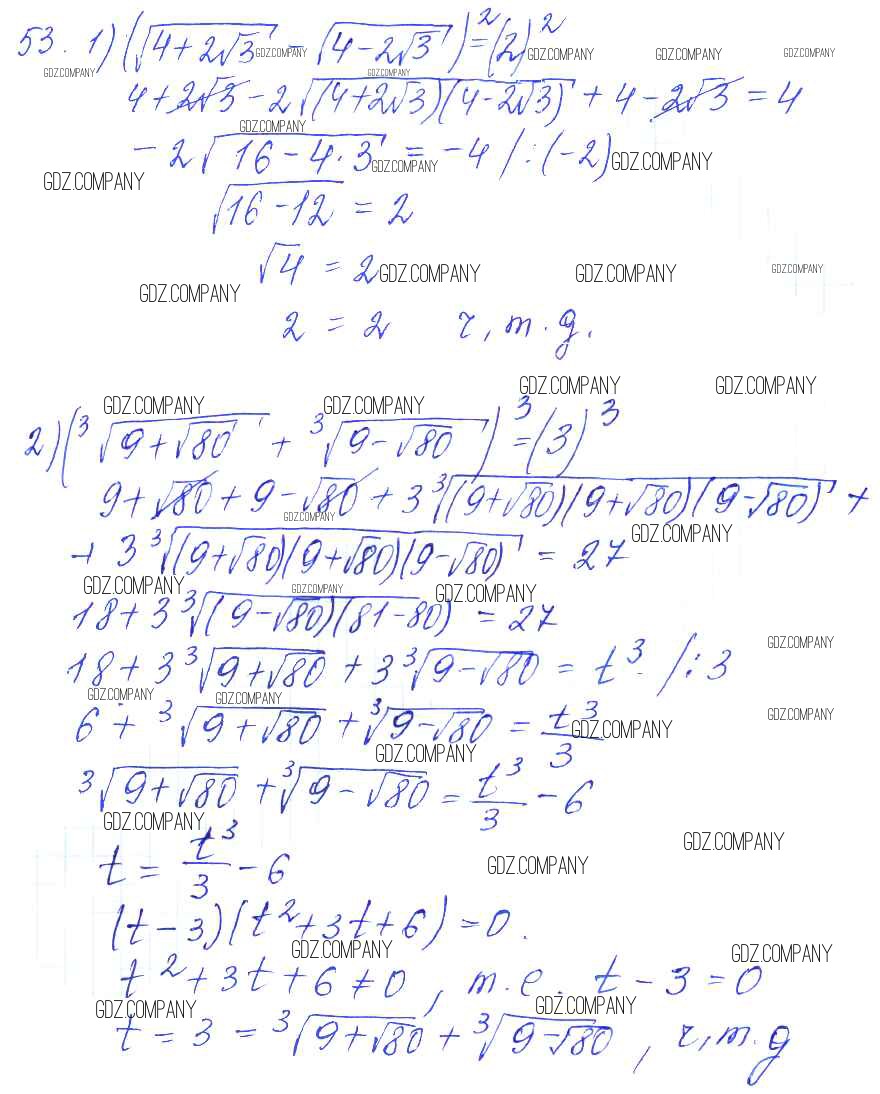 53. 1) (√(4+2√3) - √(4-2√3))² = (2)²
4+2√3 - 2√((4+2√3)(4-2√3)) + 4-2√3 = 4
-2√(16-4·3) = -4 /:(-2)
√(16-12) = 2
√4 = 2
2 = 2 ч, т. д.
2) (³√(9+√80) + ³√(9-√80))³ = (3)³
9+√80+9-√80 + 3³√((9+√80)(9+√80)(9-√80)) +
+ 3³√((9+√80)(9+√80)(9-√80)) = 27
18+3³√((9-√80)(81-80)) = 27
18+3³√(9+√80) + 3³√(9-√80) = t³. /:3
6 + ³√(9+√80) + ³√(9-√80) = t³/3
³√(9+√80) + ³√(9-√80) = t³/3 - 6
t = t³/3 - 6
(t-3)(t²+3t+6) = 0.
t²+3t+6 ≠ 0, т. е. t-3 = 0
t = 3 = ³√(9+√80) + ³√(9-√80), ч, т. д
GDZ.COMPANY